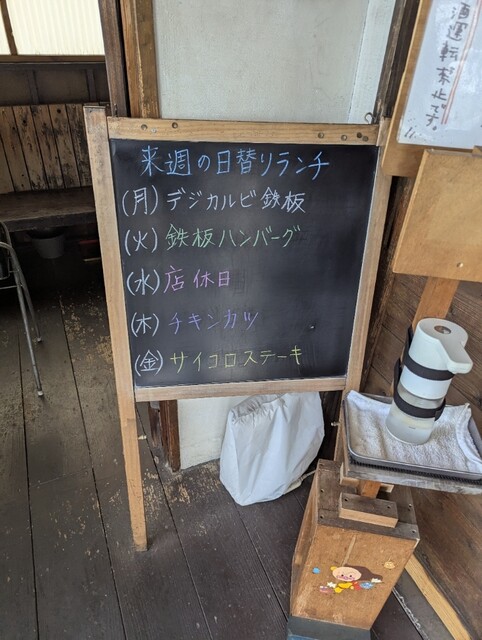 来週の日替りランチ
(月)デジカルビ鉄板
(火)鉄板ハンバーグ
(水)店休日
(木)チキンカツ
(金)サイコロステーキ
酒運転禁止です!